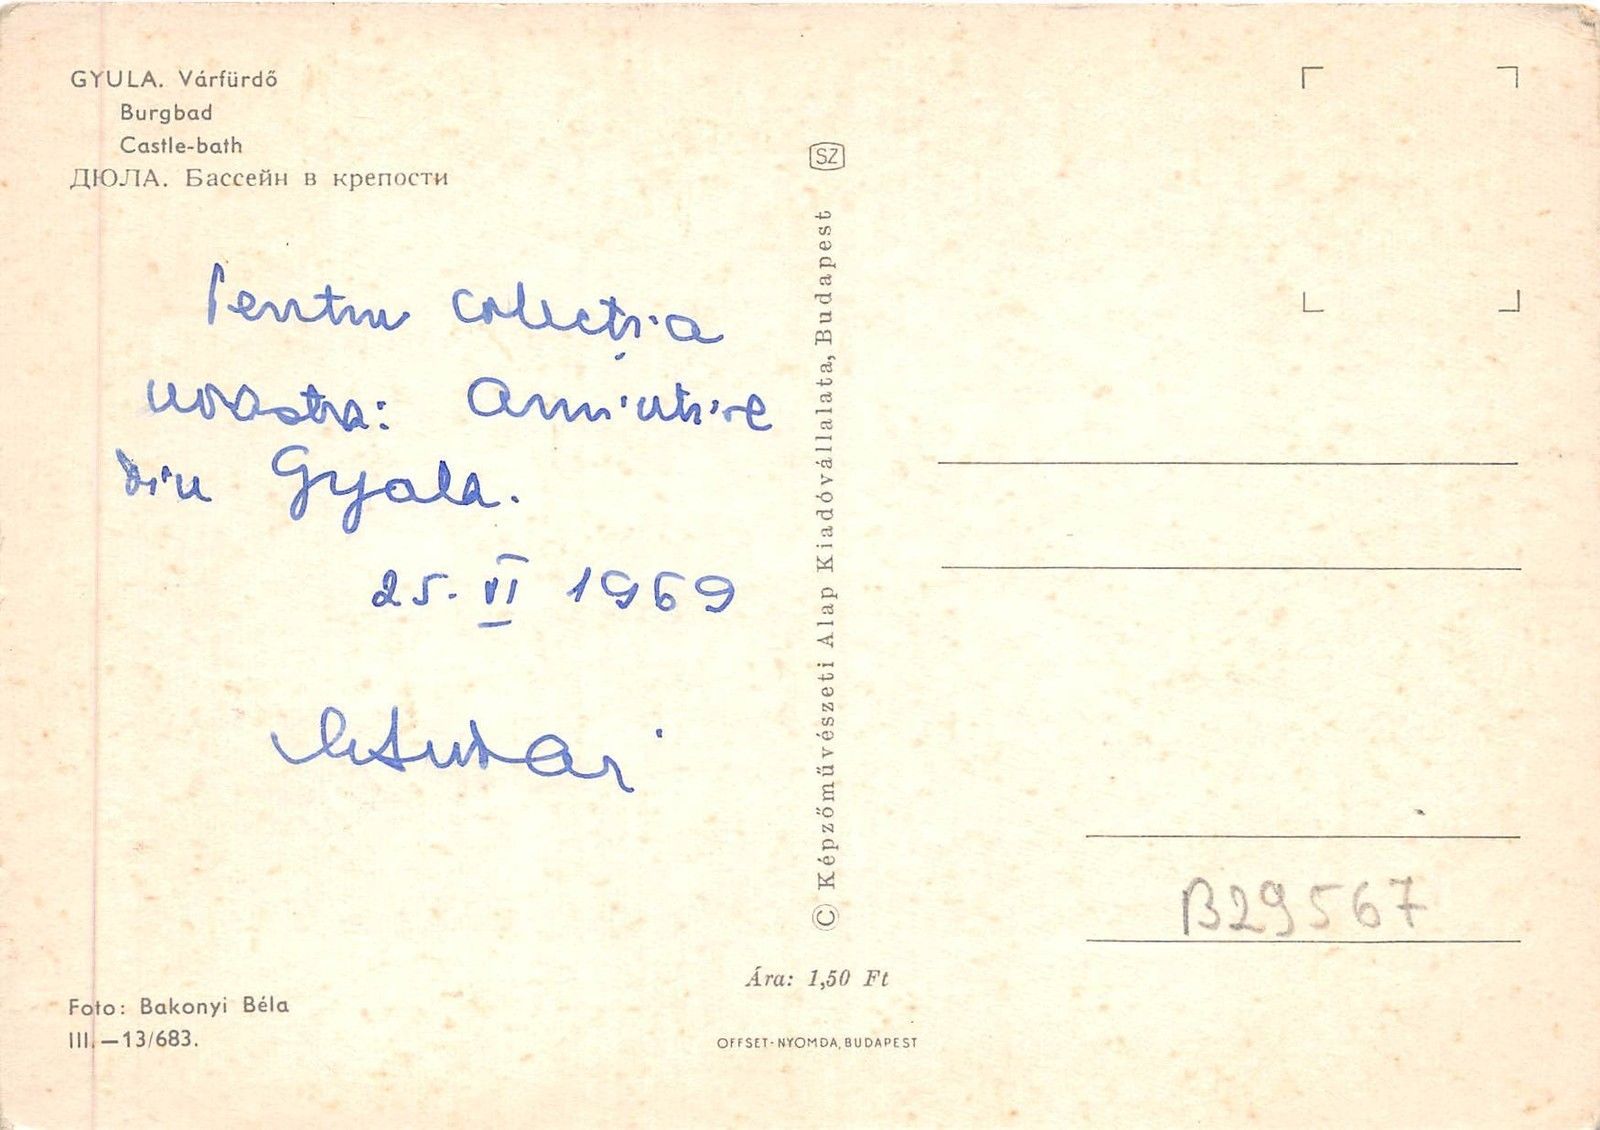 GYULA. Várfürdő
Burgbad
Castle-bath
ДЮЛА. Бассейн в крепости
Pentru colecția
noastra: Amintire
din Gyala.
25. VI 1969
SZ
© Képzőművészeti Alap Kiadóvállalata, Budapest
B29567
Ára: 1,50 Ft
OFFSET-NYOMDA, BUDAPEST
Foto: Bakonyi Béla
III.—13/683.